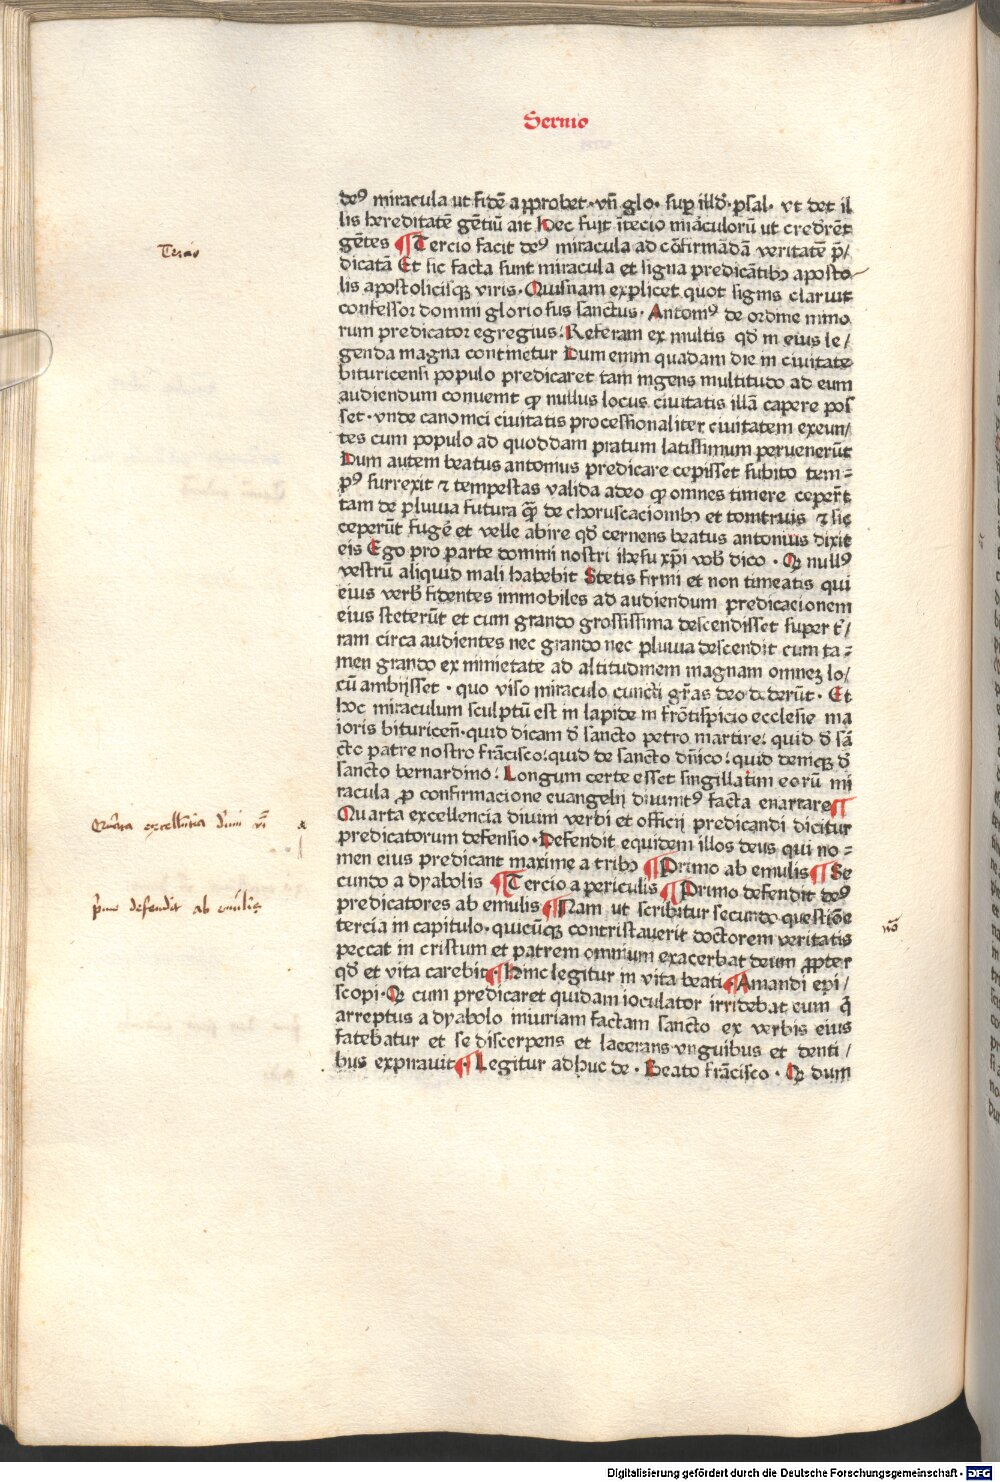 Sermo
deꝰ miracula ut fidē aꝓprobet· vñ glo· suꝑ illd̉· psal· vt det il
lis hereditatē gētiū ait Hec fuit ītecio mirāculorū ut crederēt
gētes ¶ Tercio facit deꝰ miracula ad cōfirmādā veritatē p̄/
dicatā Et sic facta sunt miracula et signa predicātibꝫ aposto
lis apostolicisqꝫ viris· Quisnam explicet quot signis claruit
confessor domini gloriosus sanctus· Antoniꝰ de ordine mino
rum predicator egregius: Referam ex multis qd̉ in eius le/
genda magna continetur Dum enim quadam die in ciuitate
bituricensi populo predicaret tam ingens multitudo ad eum
audiendum conuenit ꝙ nullus locus ciuitatis illā capere pos
set· vnde canonici ciuitatis processionaliter ciuitatem exeun/
tes cum populo ad quoddam pratum latissimum peruenerūt
Dum autem beatus antonius predicare cepisset subito tem=
pꝰ surrexit ⁊ tempestas valida adeo ꝙ omnes timere ceperūt
tam de pluuia futura q̄ de choruscacionibꝫ et tonitruis ⁊ sic
ceperūt fugē et velle abire qd̉ cernens beatus antonius dixit
eis Ego pro parte domini nostri ihesu xp̄i vob̉ dico · Qꝫ nullꝰ
vestrū aliquid mali habebit Stetis firmi et non timeatis qui
eius verb̉ fidentes immobiles ad audiendum predicacionem
eius steterūt et cum grando grossissima descendisset super t̉/
ram circa audientes nec grando nec pluuia descendit cum ta=
men grando ex inmietate ad altitudinem magnam omneꝫ lo/
cū ambijsset · quo viso miraculo cuncti gr̄as deo dederūt · Et
hoc miraculum sculptū est in lapide in frōtispicio ecclesie ma
ioris bituriceñ·quid dicam d̉ sancto petro martire: quid d̉ sā
cto patre nostro frācisco:quid de sancto dn̄ico:quid deniqꝫ d̉
sancto bernardino: Longum certe esset singillatim eorū mi
racula ꝓ confirmacione euangelij diuinitꝰ facta enarrare ¶
Quarta excellencia diuini verbi et officij predicandi dicitur
predicatorum defensio· Defendit equidem illos deus qui no=
men eius predicant maxime a tribꝫ ¶ Primo ab emulis ¶ Se
cundo a dyabolis ¶ Tercio a periculis ¶ Primo defendit deꝰ
predicatores ab emulis ¶ Nam ut scribitur secundo questiōe
tercia in capitulo· quicūqꝫ contristauerit doctorem veritatis
peccat in cristum et patrem omnium exacerbat deum ꝓpter
qd̉ et vita carebit ¶ Hinc legitur in vita beati ¶ Amandi epi/
scopi· Qꝫ cum predicaret quidam ioculator irridebat eum q̄
arreptus a dyabolo iniuriam factam sancto ex verbis eius
fatebatur et se discerpens et lacerans vnguibus et denti/
bus expirauit ¶ Legitur adhuc de · Beato frācisco · Qꝫ dum
Tercio
Quarta excellentia diuini v̄i
p̄mo defendit ab emulis
nō
Digitalisierung gefördert durch die Deutsche Forschungsgemeinschaft - DFG